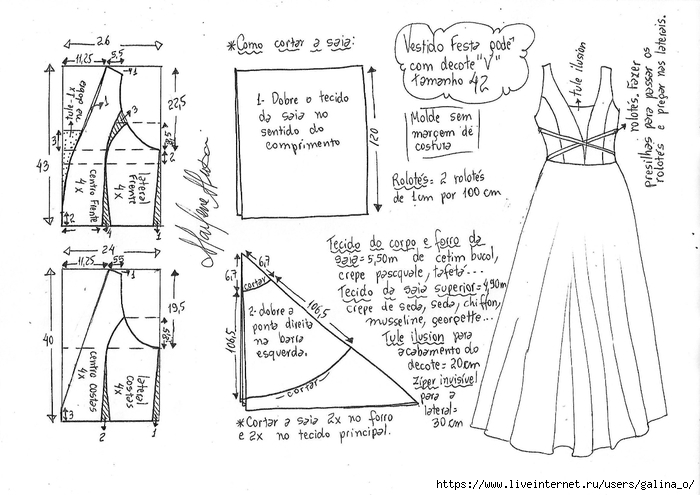 26
11,25
5,5
1
22,5
tule
1x na dobra
3
5,5
2
43
centro Frente
4x
lateral
Frente
4x
2
4
1
24
11,25
5,5
1
19,5
5,5
40
centro costas
4x
lateral
costas
4x
3
2
1
*Como cortar a saia:
1- Dobre o tecido
da saia no
sentido do
comprimento
120
6,7
6,7
cortar
106,5
106,5
2- dobre a
ponta direita
na barra
esquerda.
cortar
*Cortar a saia 2x no forro
e 2x no tecido principal.
Vestido Festa pode
com decote "V"
tamanho 42
Molde sem
margem de
costura
Rolotês= 2 rolotês
de 1cm por 100 cm
Tecido do corpo e forro da
saia= 5,50m de cetim bucol,
crepe pasquale, tafetá...
Tecido da saia superior= 4,90m
crepe de seda, seda, chiffon,
musseline, georgette...
Tule ilusion para
acabamento do
decote= 20cm
Zíper invisível
para a
lateral=
30cm
tule ilusion
rolotês. Fazer
presilhas para passar os
rolotês e pregar nas laterais.
https://www.liveinternet.ru/users/galina_o/